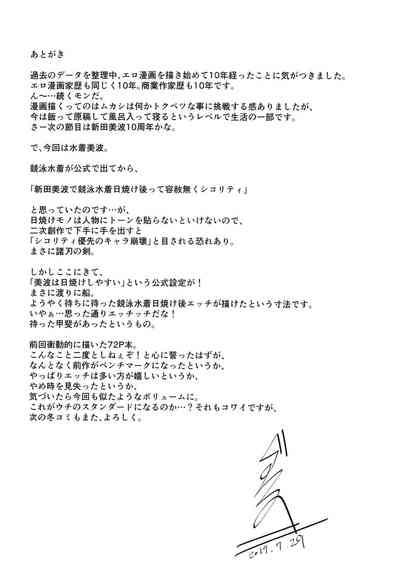 あとがき
過去のデータを整理中、エロ漫画を描き始めて10年経ったことに気がつきました。
エロ漫画家歴も同じく10年。商業作家歴も10年です。
ん～…続くモンだ。
漫画描くってのはムカシは何かトクベツな事に挑戦する感ありましたが、
今は飯って原稿して風呂入って寝るというレベルで生活の一部です。
さー次の節目は新田美波10周年かな。
で、今回は水着美波。
競泳水着が公式で出てから、
「新田美波で競泳水着日焼け後って容赦無くシコリティ」
と思っていたのです…が、
日焼けモノは人物にトーンを貼らないといけないので、
二次創作で下手に手を出すと
「シコリティ優先のキャラ崩壊」と目される恐れあり。
まさに諸刃の剣。
しかしここにきて、
「美波は日焼けしやすい」という公式設定が！
まさに渡りに船。
ようやく待ちに待った競泳水着日焼け後エッチが描けたという寸法です。
いやぁ…思った通りエッチッチだな！
待った甲斐があったというもの。
前回衝動的に描いた72P本。
こんなこと二度としねぇぞ！と心に誓ったはずが、
なんとなく前作がベンチマークになったというか、
やっぱりエッチは多い方が嬉しいというか、
やめ時を見失ったというか、
気づいたら今回も似たようなボリュームに。
これがウチのスタンダードになるのか…？それもコワイですが、
次の冬コミもまた、よろしく。
2017.7.29